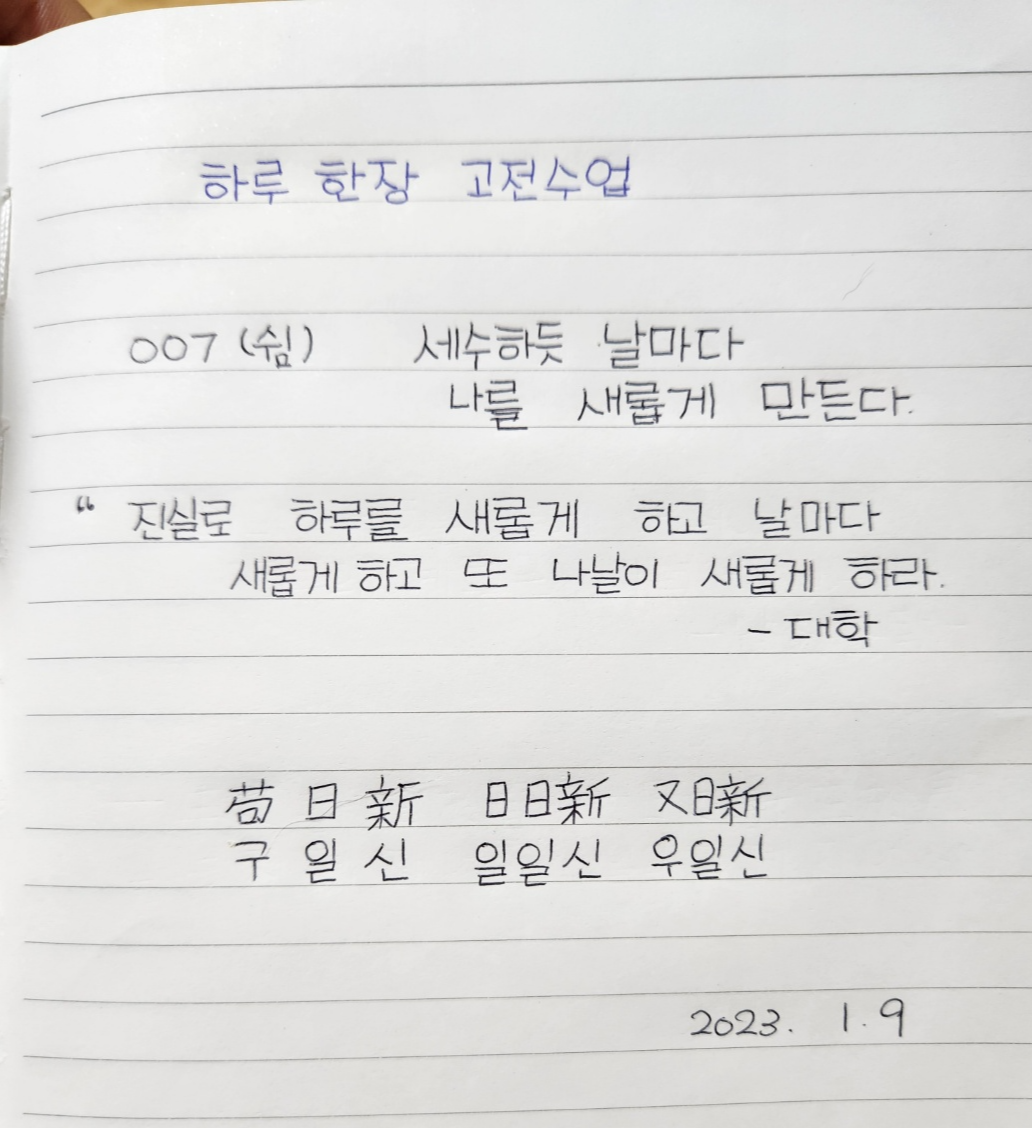 하루 한장 고전수업
007 (쉼) 세수하듯 날마다
나를 새롭게 만든다.
“ 진실로 하루를 새롭게 하고 날마다
새롭게 하고 또 나날이 새롭게 하라.
- 대학
苟日新 日日新 又日新
구일신 일일신 우일신
2023. 1. 9